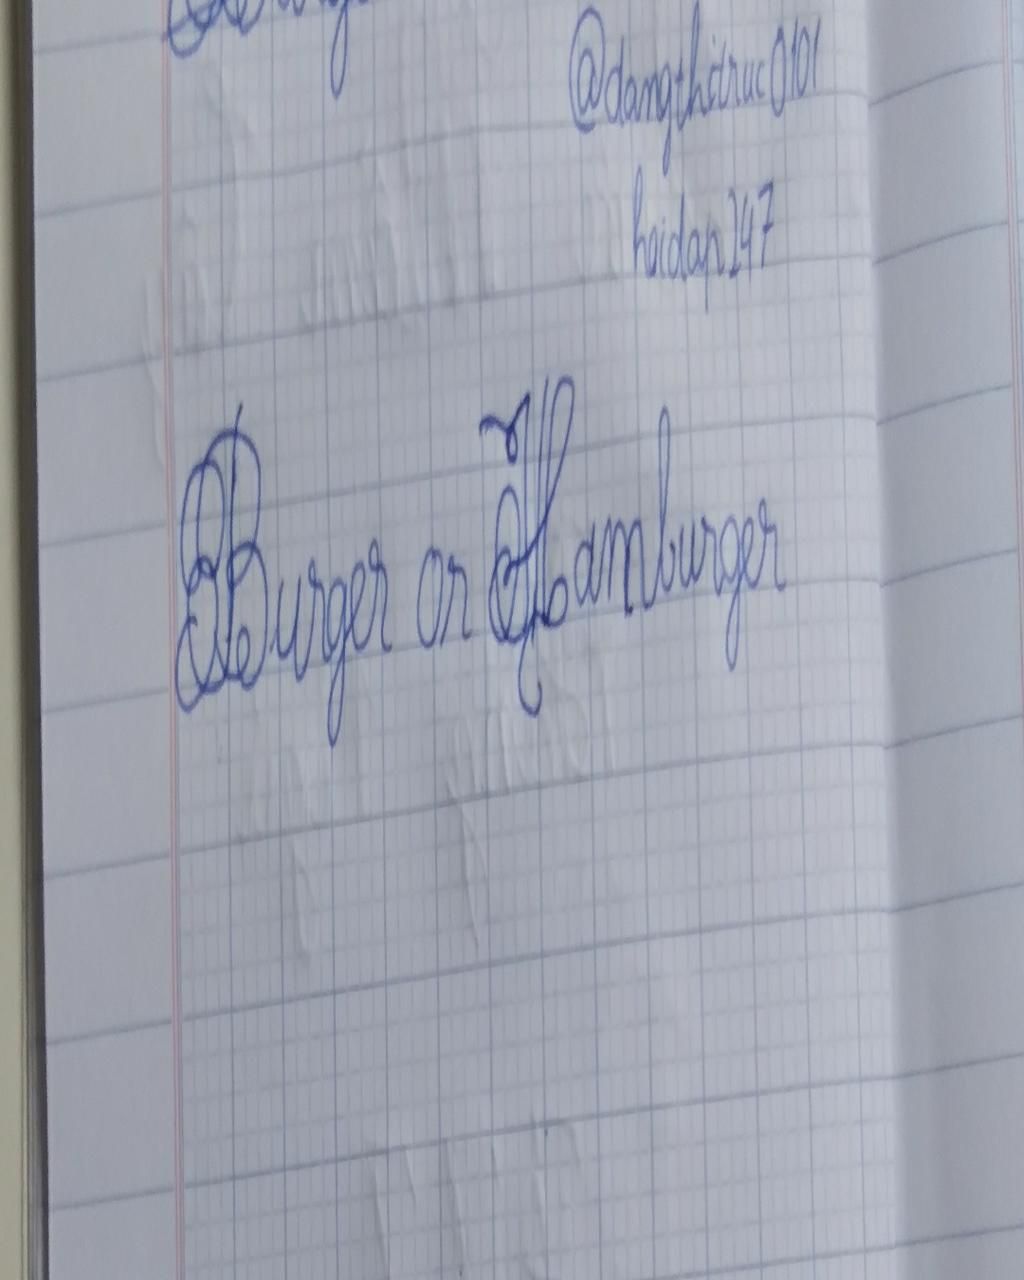 @dangthitruc0101
hoidap247
Burger or Hamburger